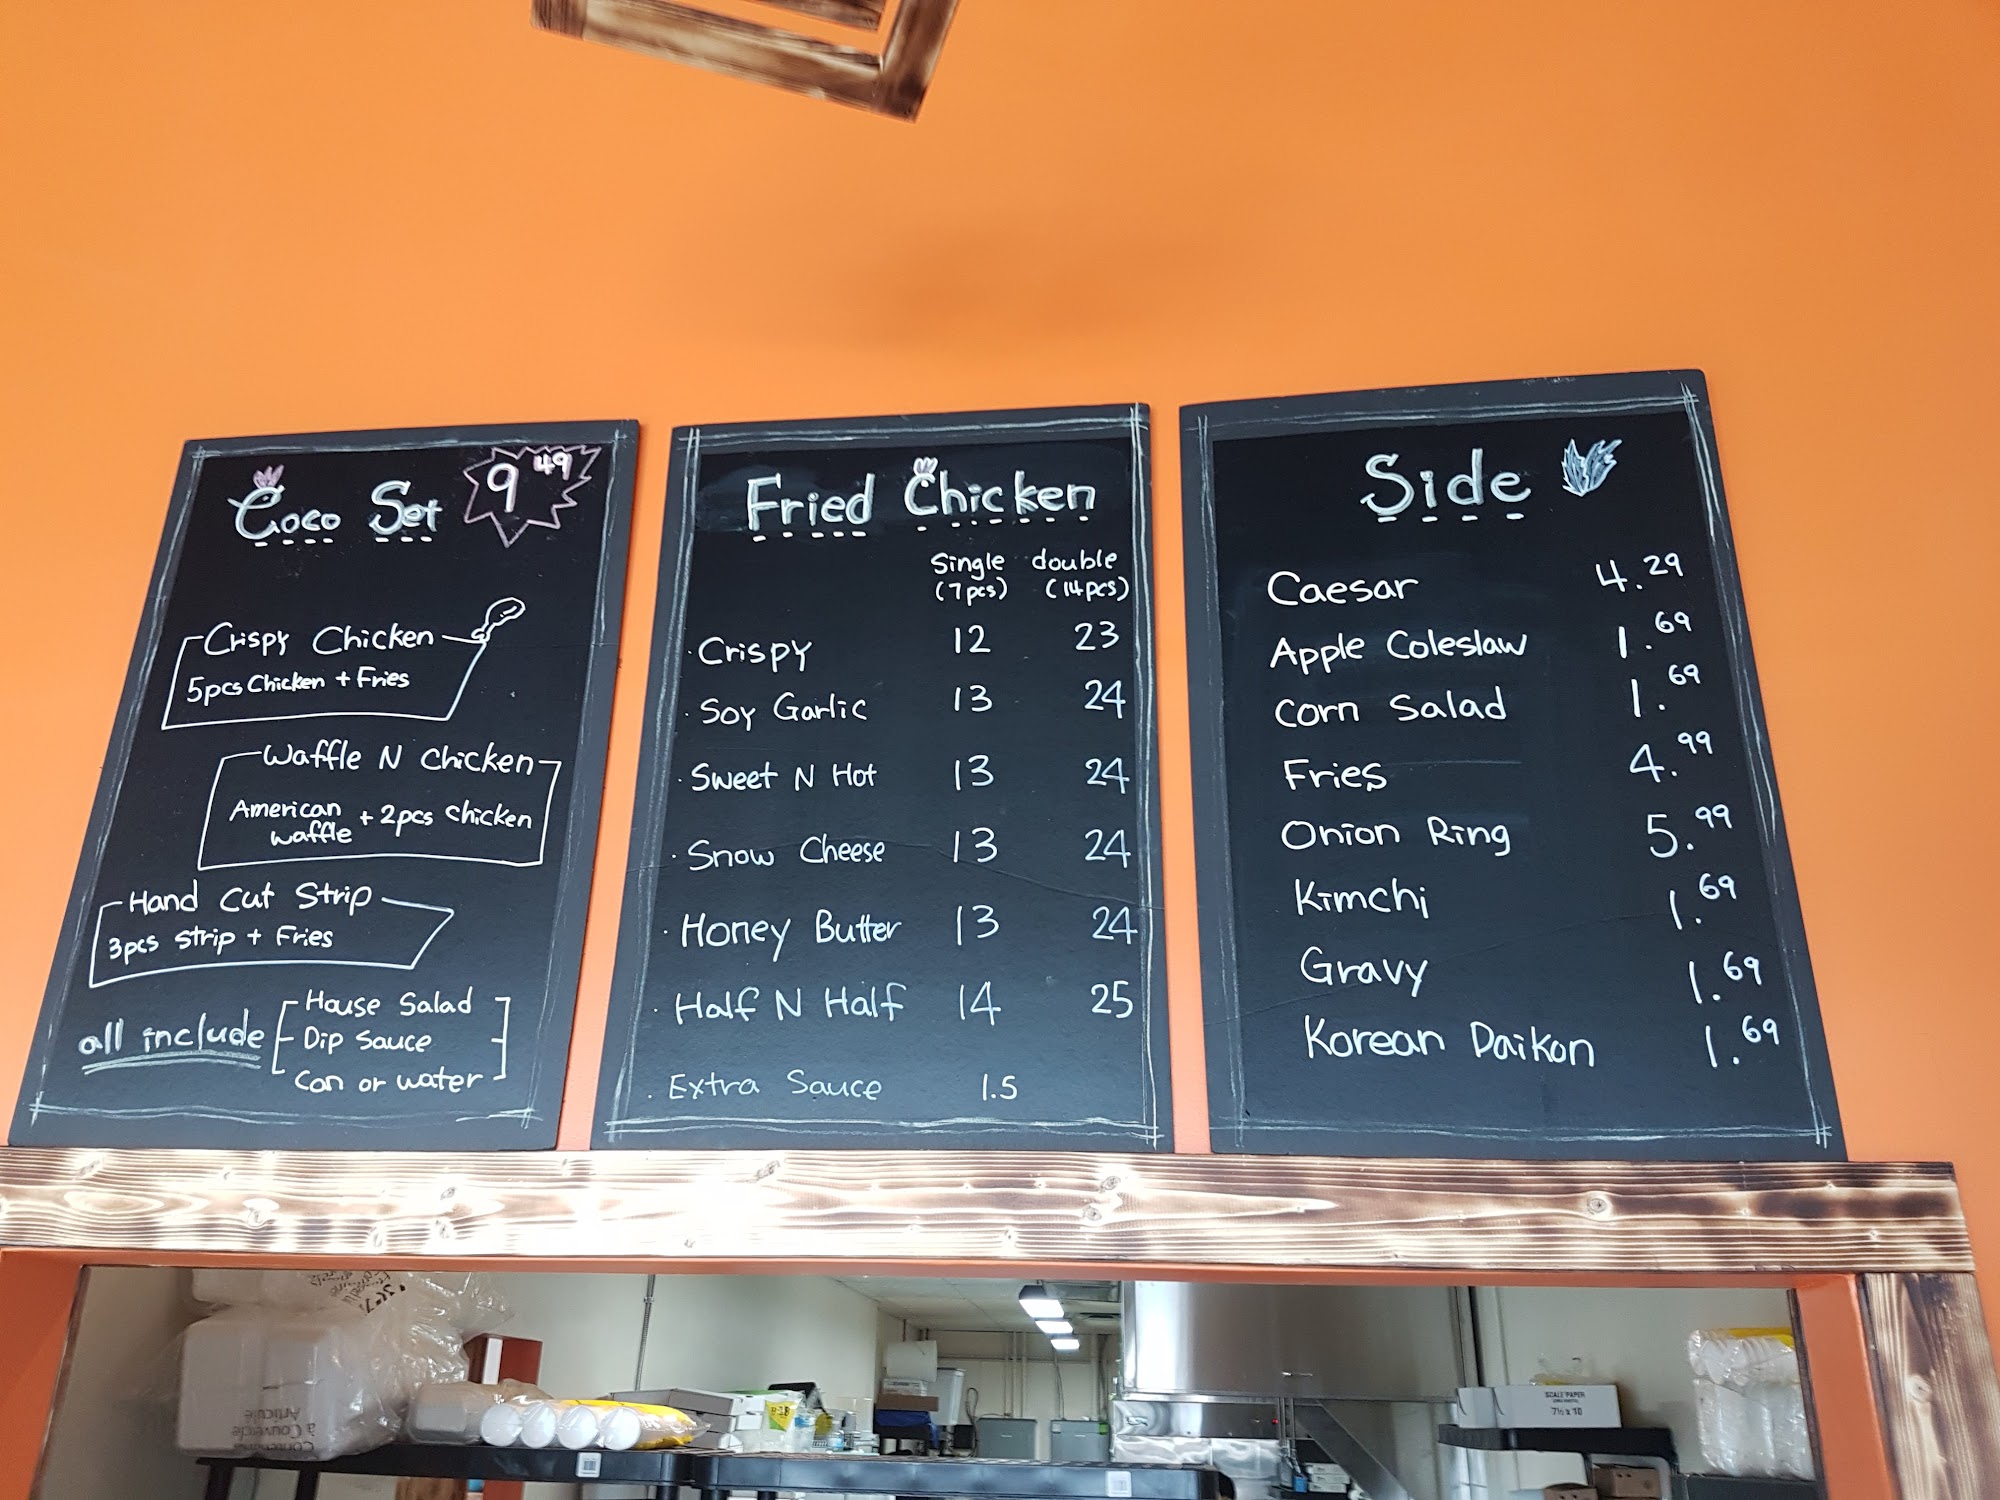 Coco Set 9 49
Crispy Chicken
5pcs Chicken + Fries
Waffle N Chicken
American waffle + 2pcs chicken
Hand Cut Strip
3pcs strip + Fries
all include
House Salad
Dip Sauce
Can or water
Fried Chicken
Single double
(7pcs) (14pcs)
· Crispy 12 23
· Soy Garlic 13 24
· Sweet N Hot 13 24
· Snow Cheese 13 24
· Honey Butter 13 24
· Half N Half 14 25
· Extra Sauce 1.5
Side
Caesar 4.29
Apple Coleslaw 1.69
Corn Salad 1.69
Fries 4.99
Onion Ring 5.99
Kimchi 1.69
Gravy 1.69
Korean Daikon 1.69
SCALE PAPER
7½ x 10
Article
à Couvercle